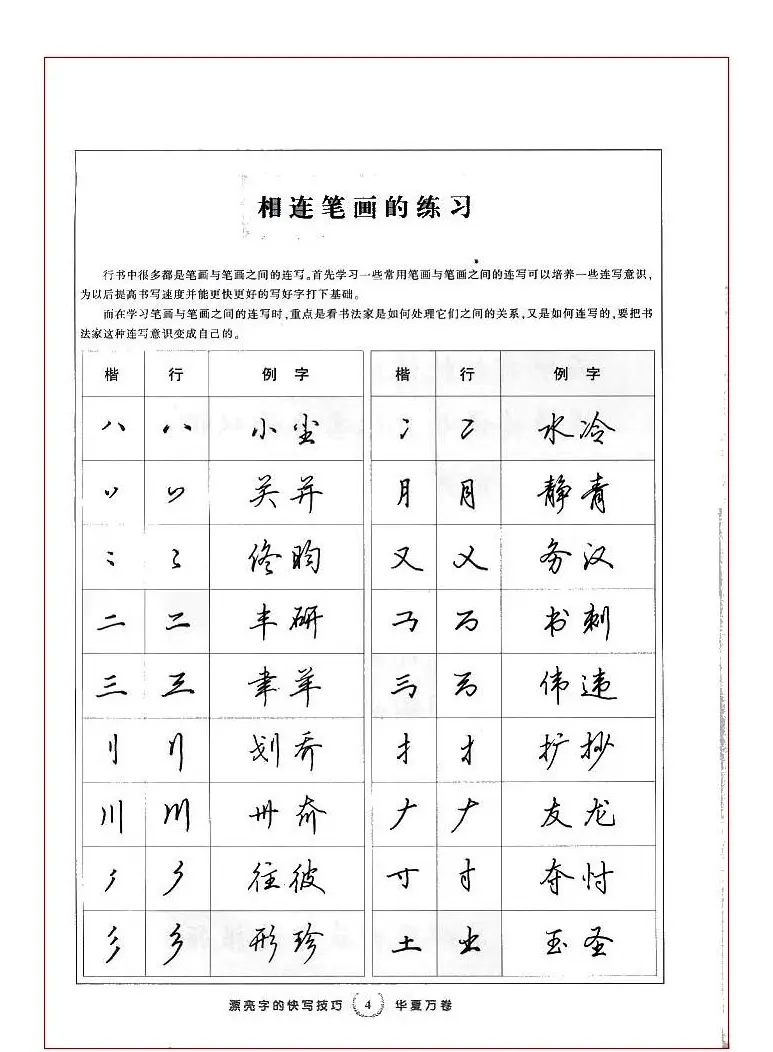 相连笔画的练习
行书中很多都是笔画与笔画之间的连写。首先学习一些常用笔画与笔画之间的连写可以培养一些连写意识，
为以后提高书写速度并能更快更好的写好字打下基础。
而在学习笔画与笔画之间的连写时，重点是看书法家是如何处理它们之间的关系，又是如何连写的，要把书
法家这种连写意识变成自己的。
楷 行 例字 楷 行 例字
八 八 小尘 冫 冫 水冷
丷 丷 关并 月 月 静青
佟昀 又 又 务汉
二 二 丰研 书刺
三 三 聿羊 伟违
刂 刂 划乔 扌 扌 扩抄
川 川 卅奔 𠂇 𠂇 友龙
往彼 寸 寸 夺忖
彡 彡 形珍 土 土 玉圣
漂亮字的快写技巧 4 华夏万卷